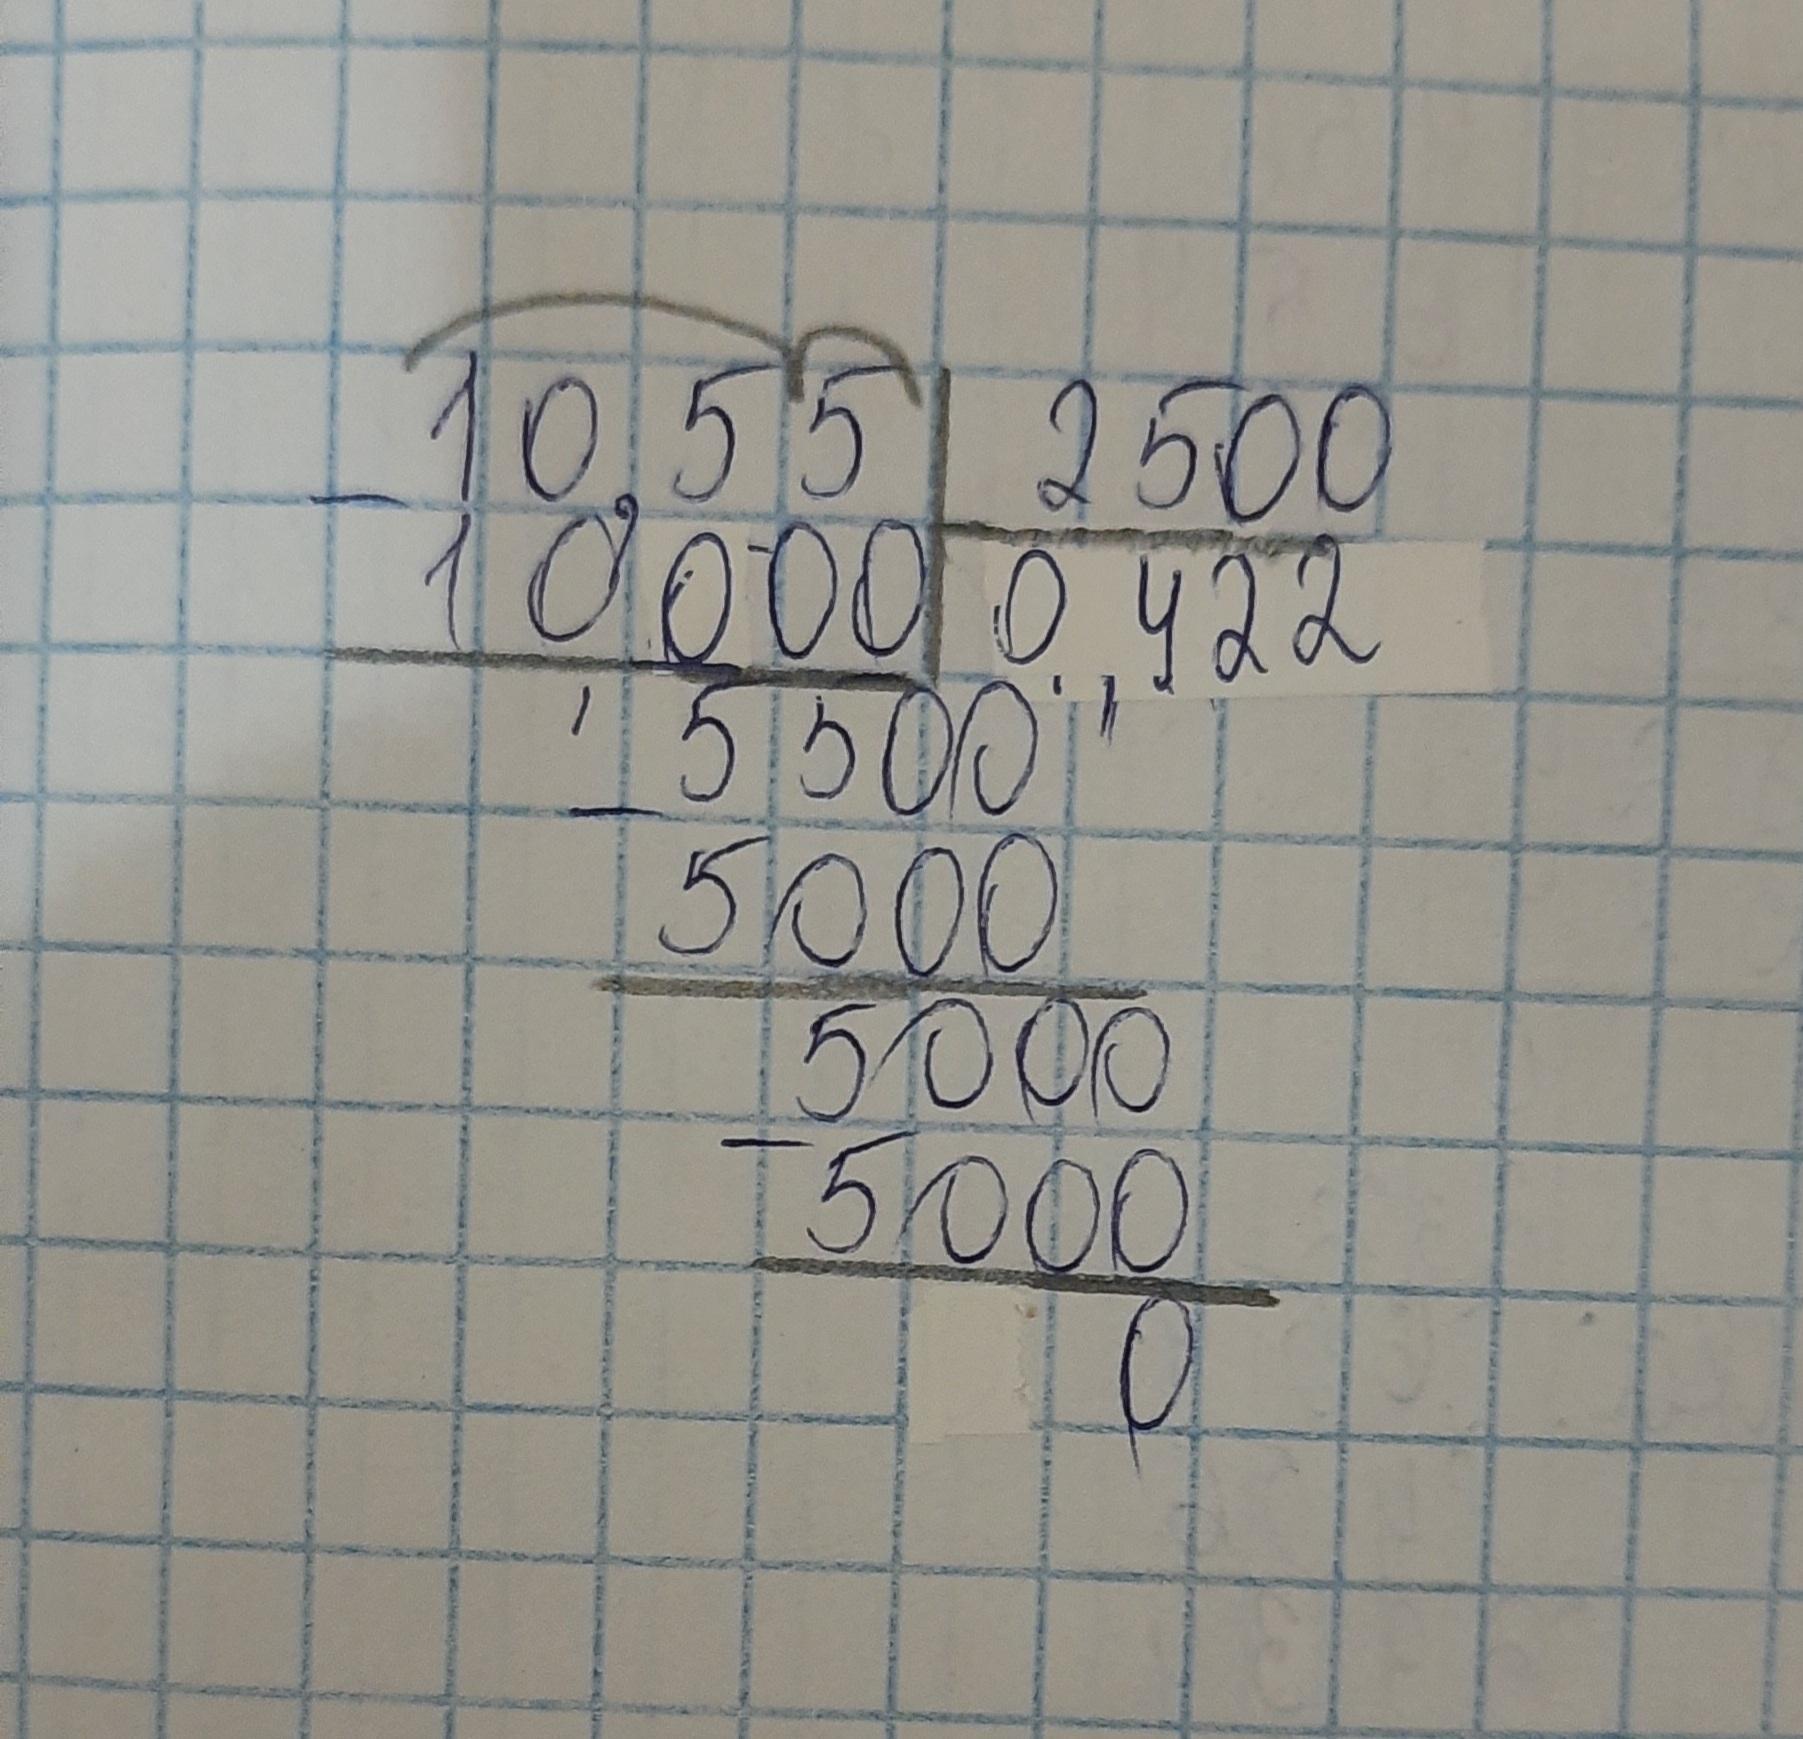 10,55 2500
10000 0,422
5500
5000
5000
5000
0